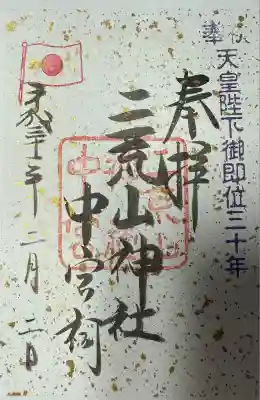 奉祝 天皇陛下御即位三十年
奉拝
二荒山神社
中宮祠
平成三十一年 二月 二日